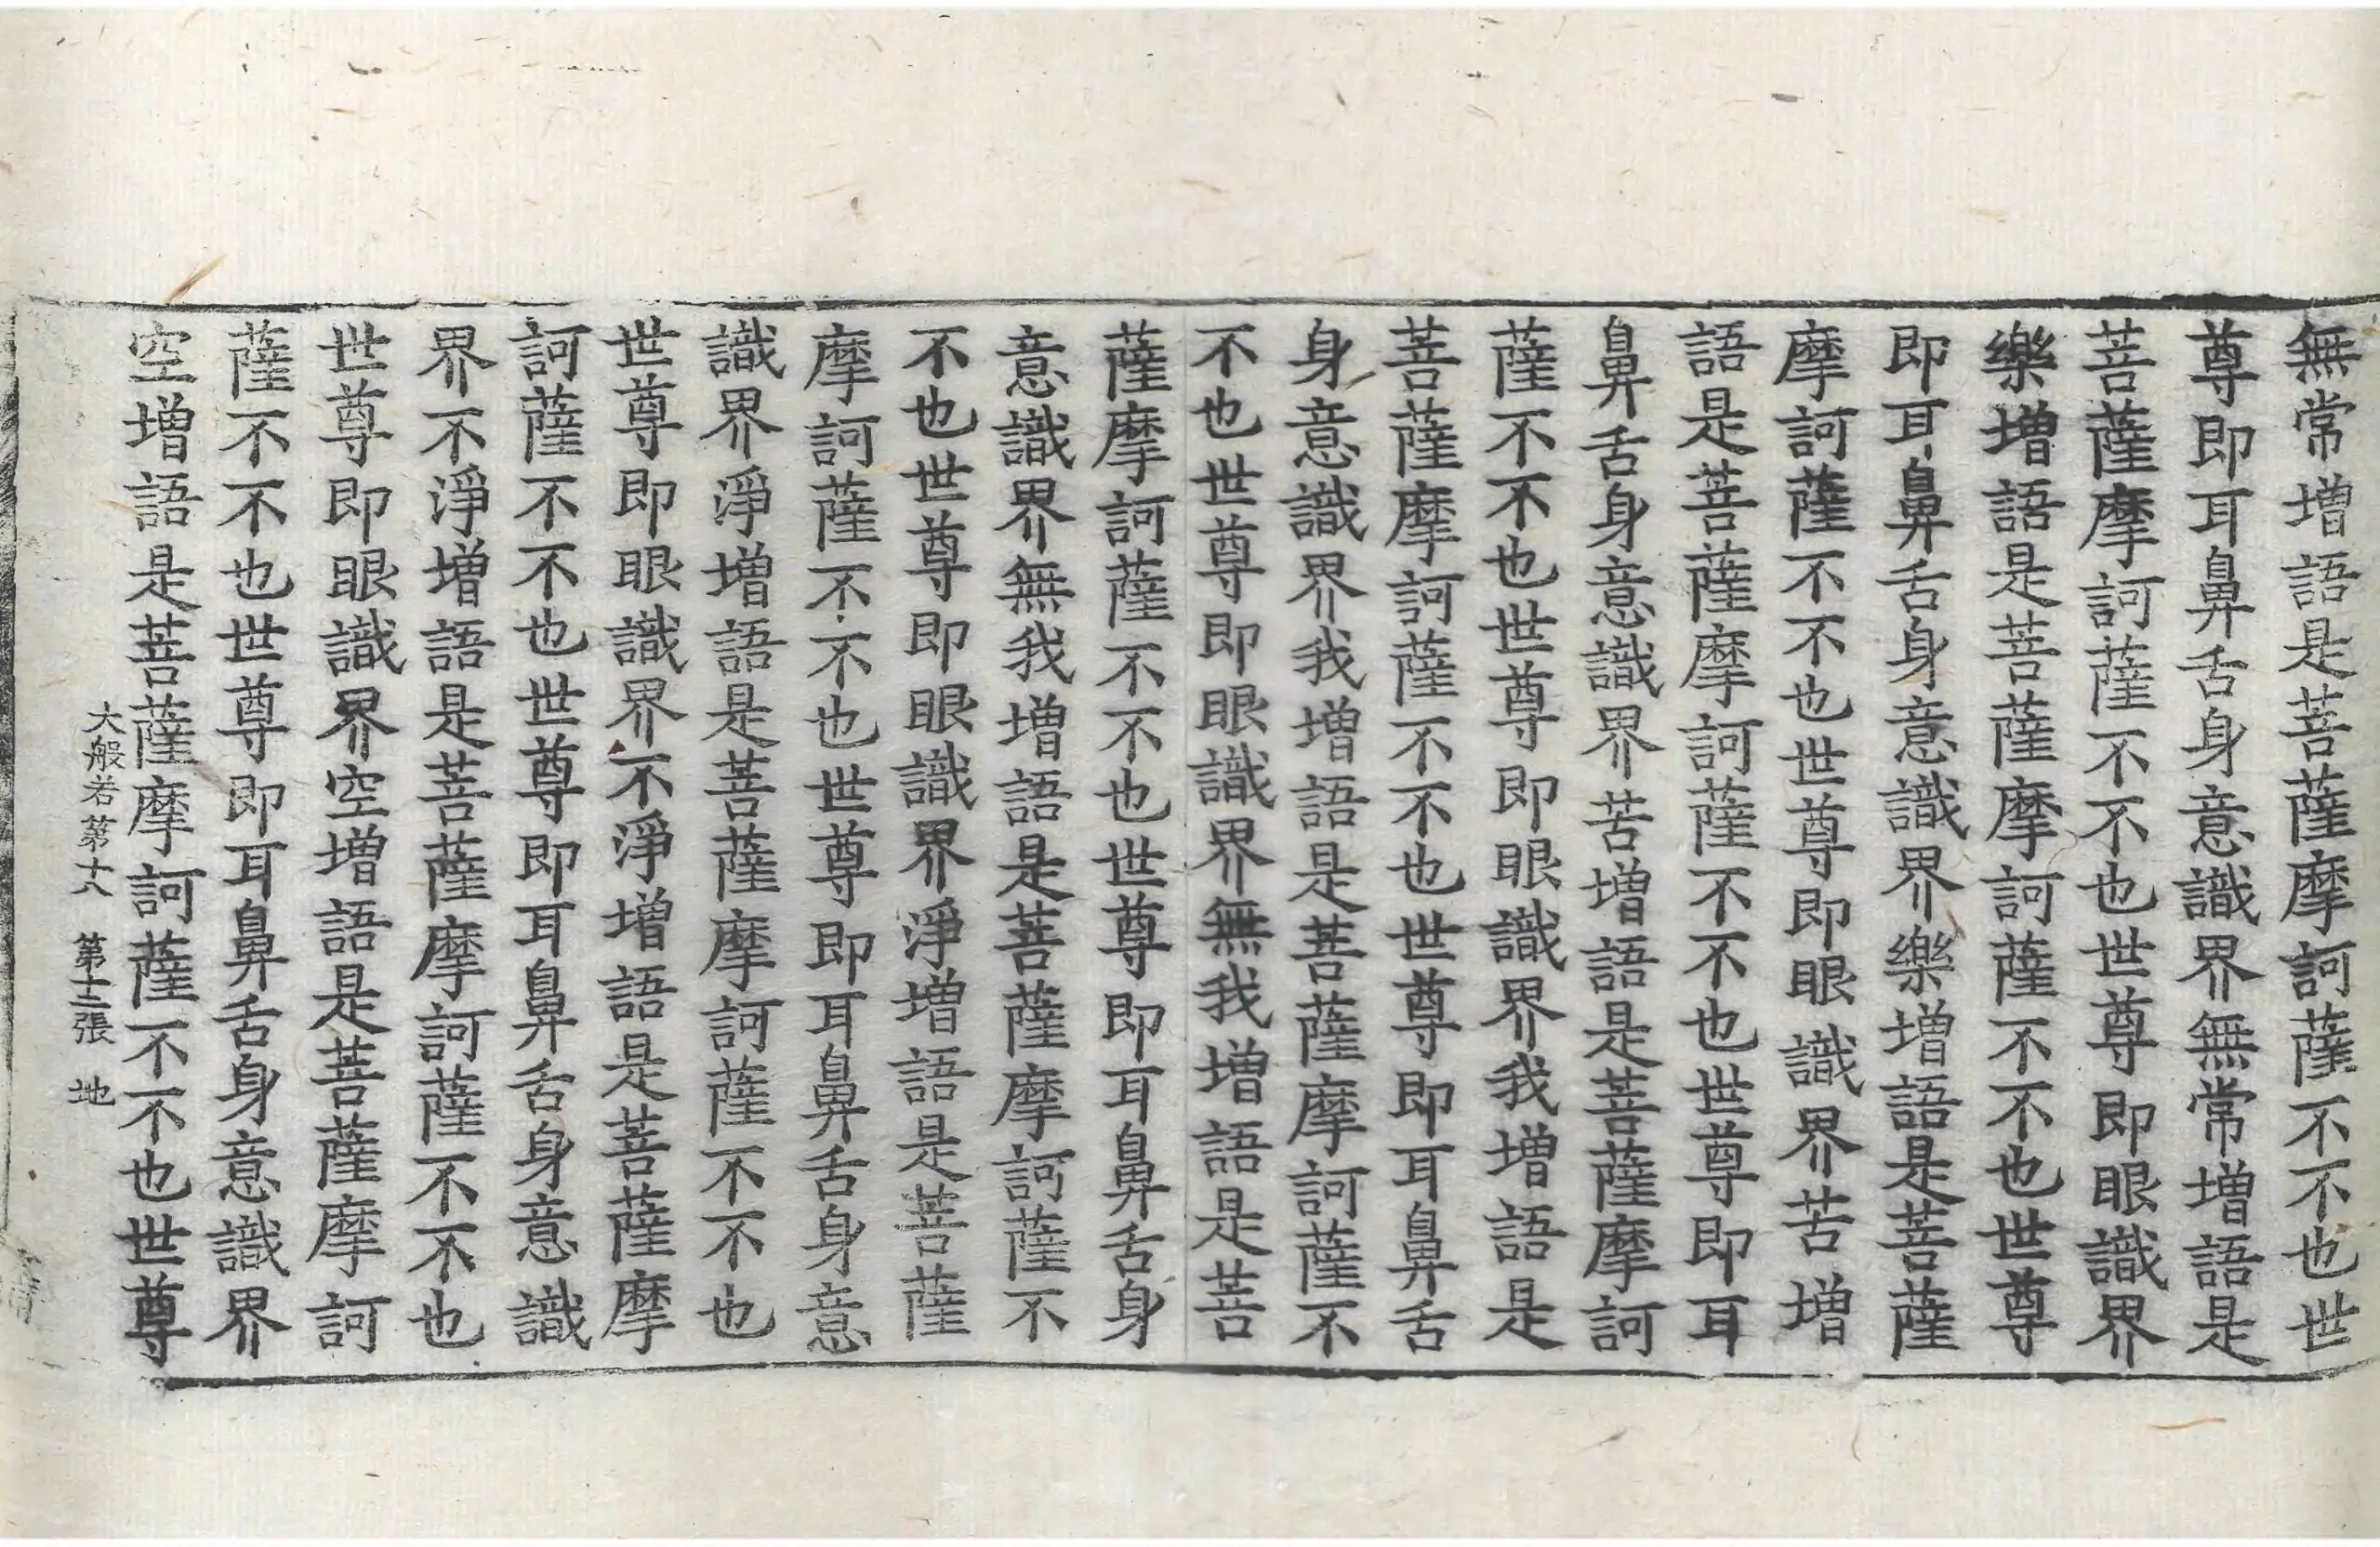 無常增語是菩薩摩訶薩不不也世
尊即耳鼻舌身意識界無常增語是
菩薩摩訶薩不不也世尊即眼識界
樂增語是菩薩摩訶薩不不也世尊
即耳鼻舌身意識界樂增語是菩薩
摩訶薩不不也世尊即眼識界苦增
語是菩薩摩訶薩不不也世尊即耳
鼻舌身意識界苦增語是菩薩摩訶
薩不不也世尊即眼識界我增語是
菩薩摩訶薩不不也世尊即耳鼻舌
身意識界我增語是菩薩摩訶薩不
不也世尊即眼識界無我增語是菩
薩摩訶薩不不也世尊即耳鼻舌身
意識界無我增語是菩薩摩訶薩不
不也世尊即眼識界淨增語是菩薩
摩訶薩不不也世尊即耳鼻舌身意
識界淨增語是菩薩摩訶薩不不也
世尊即眼識界不淨增語是菩薩摩
訶薩不不也世尊即耳鼻舌身意識
界不淨增語是菩薩摩訶薩不不也
世尊即眼識界空增語是菩薩摩訶
薩不不也世尊即耳鼻舌身意識界
空增語是菩薩摩訶薩不不也世尊
大般若第十八 第十二張 地